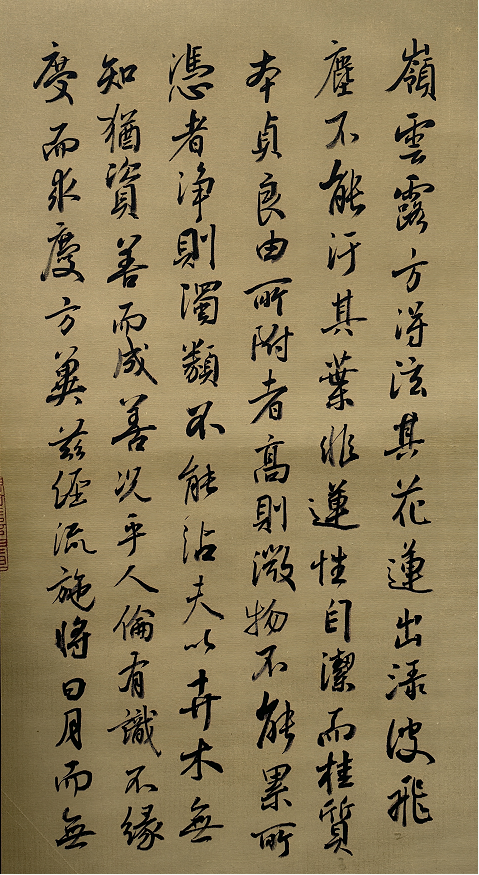 嶺雲露方得泫其花蓮出淥波飛
塵不能汙其葉非蓮性自潔而桂質
本貞良由所附者高則微物不能累所
憑者淨則濁類不能沾夫以卉木無
知猶資善而成善況乎人倫有識不緣
慶而求慶方冀茲經流施將日月而無